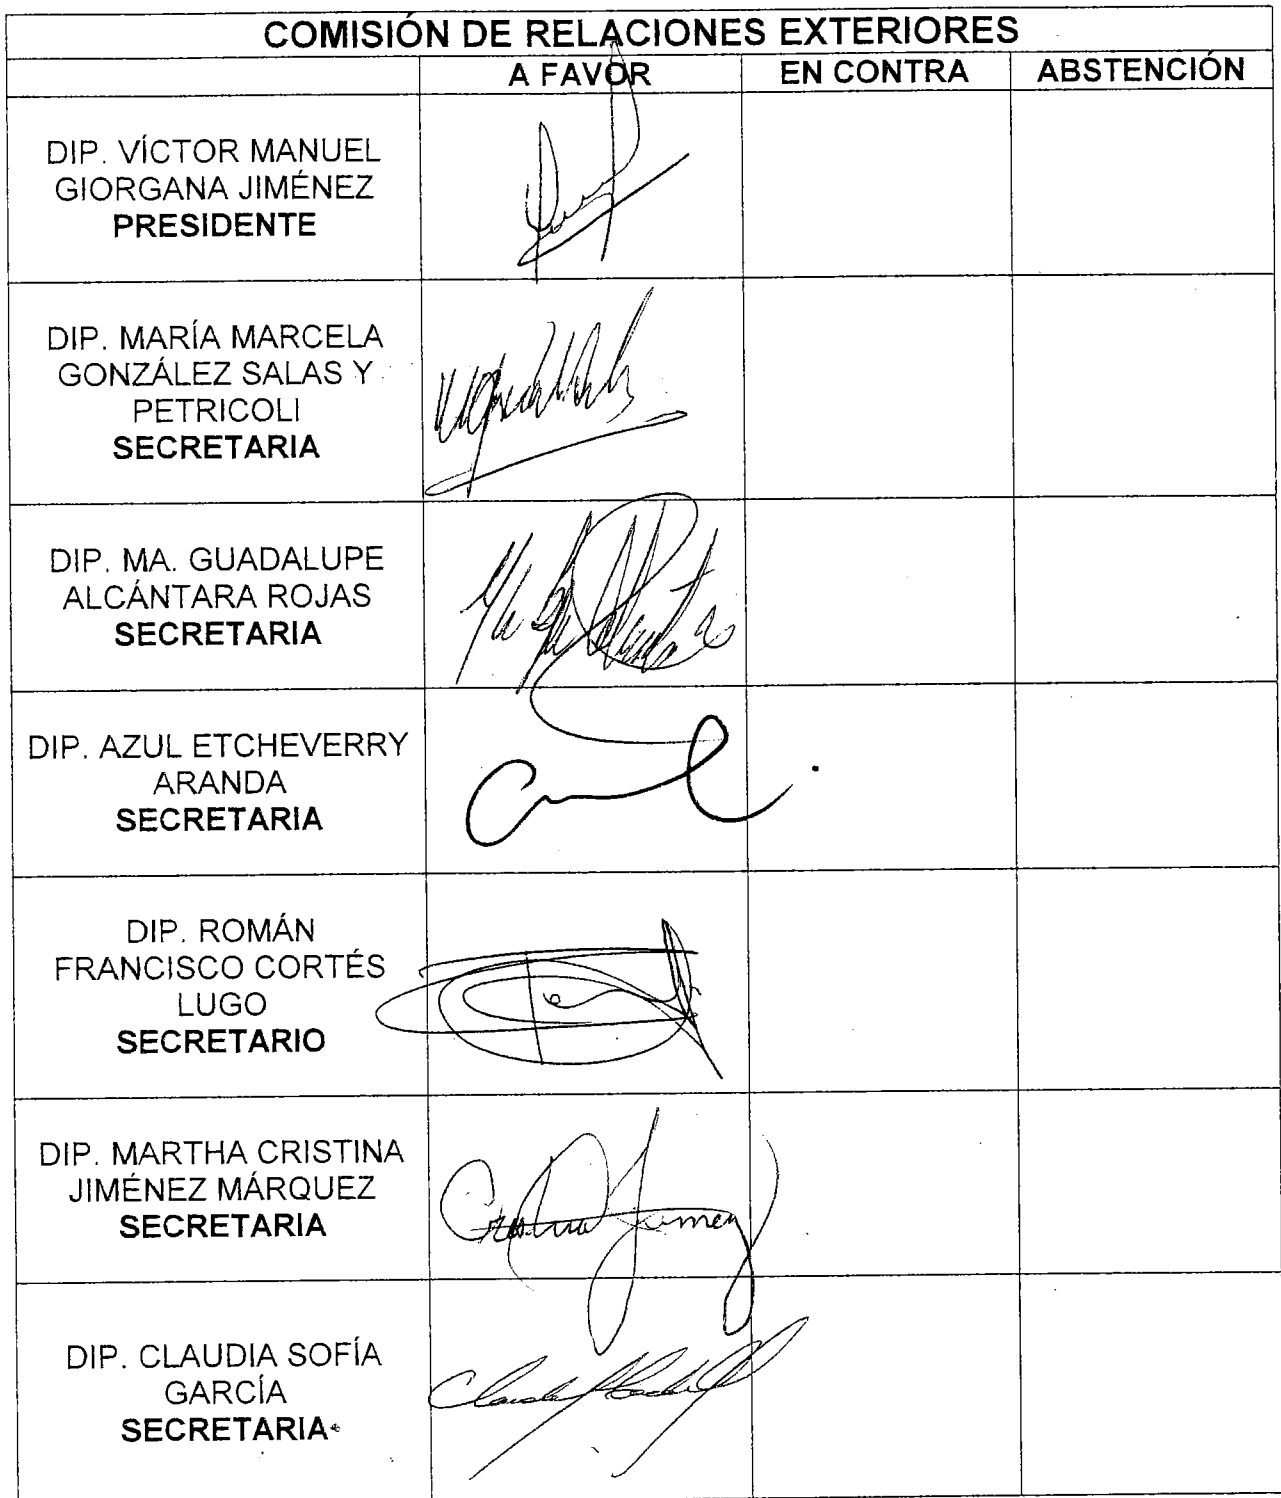 COMISIÓN DE RELACIONES EXTERIORES
A FAVOR EN CONTRA ABSTENCIÓN
DIP. VÍCTOR MANUEL
GIORGANA JIMÉNEZ
PRESIDENTE
DIP. MARÍA MARCELA
GONZÁLEZ SALAS Y
PETRICOLI
SECRETARIA
DIP. MA. GUADALUPE
ALCÁNTARA ROJAS
SECRETARIA
DIP. AZUL ETCHEVERRY
ARANDA
SECRETARIA
DIP. ROMÁN
FRANCISCO CORTÉS
LUGO
SECRETARIO
DIP. MARTHA CRISTINA
JIMÉNEZ MÁRQUEZ
SECRETARIA
DIP. CLAUDIA SOFÍA
GARCÍA
SECRETARIA